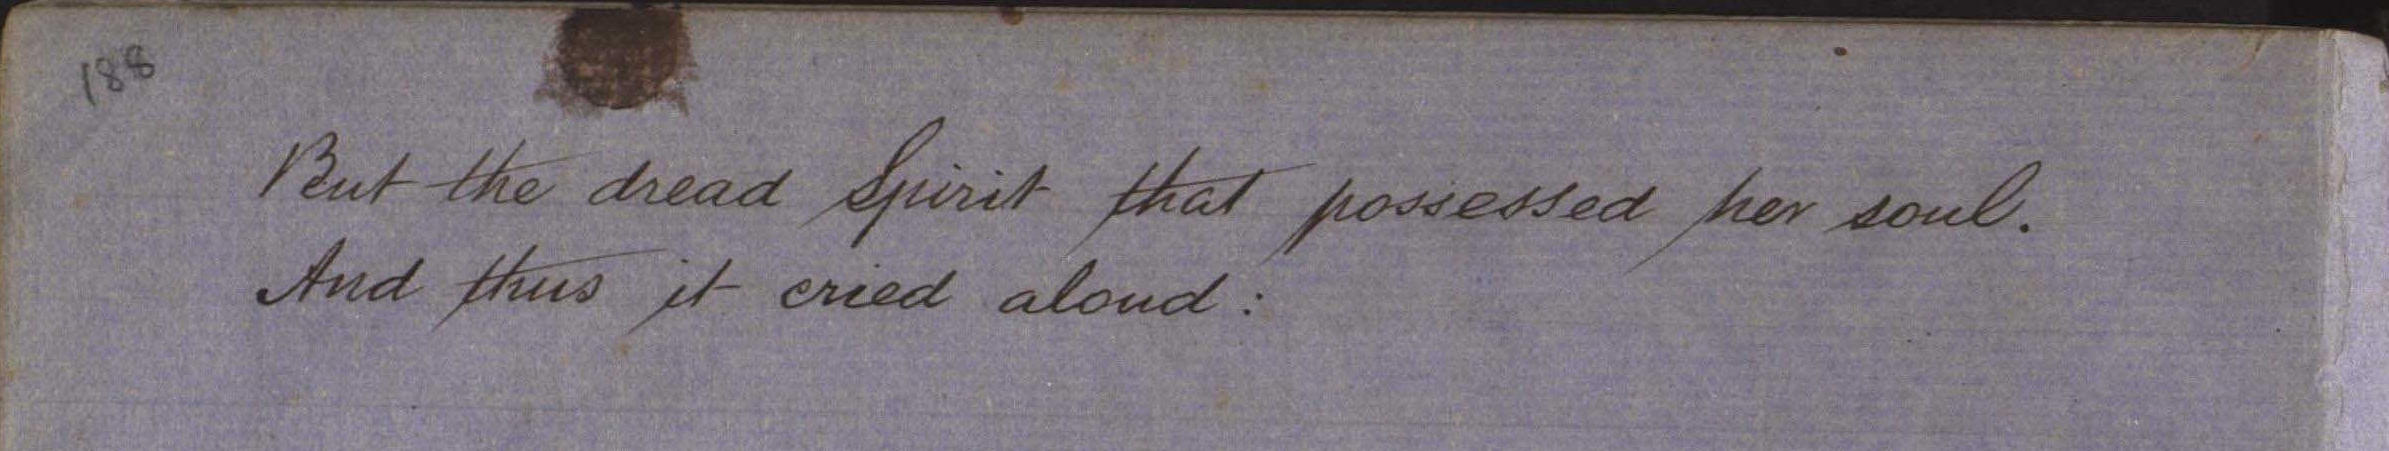 188
But the dread Spirit that possessed her soul.
And thus it cried aloud: